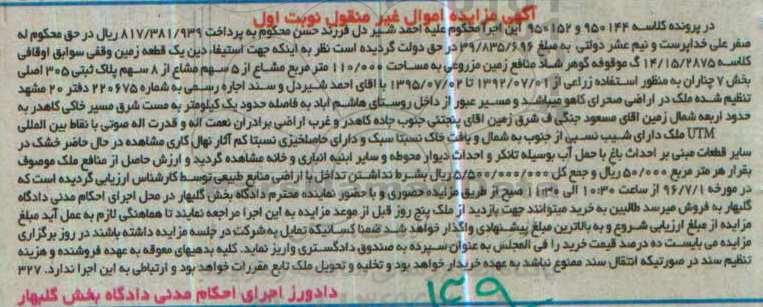 آگهی مزایده اموال غیر منقول نوبت اول
در پرونده کلاسه ۹۵۰۱۴۴ و ۹۵۰۱۵۲ این اجرا محکوم علیه احمد شیر دل فرزند حسن محکوم به پرداخت ۸۱۷/۳۸۱/۹۳۹ ریال در حق محکوم له
صفر علی خداپرست و نیم عشر دولتی به مبلغ ۳۹/۸۳۵/۶۹۶ در حق دولت گردیده است نظر به اینکه جهت استیفاء دین یک قطعه زمین وقفی سوابق اوقافی
کلاسه ۱۴/۱۵/۲۸۷۵ گ موقوفه گوهر شاد منافع زمین مزروعی به مساحت ۱۱۰/۰۰۰ متر مربع مشاع از ۵ سهم مشاع از ۸ سهم پلاک ثبتی ۳۰۵ اصلی
بخش ۷ چناران به منظور استفاده زراعی از ۱۳۹۲/۰۷/۰۱ تا ۱۳۹۵/۰۷/۰۲ با اقای احمد شیردل و سند اجاره رسمی به شماره ۲۲۰۶۷۵ دفتر ۲۰ مشهد
تنظیم شده ملک در اراضی صحرای کاهو میباشد و مسیر عبور از داخل روستای هاشم آباد به فاصله حدود یک کیلومتر به مست شرق مسیر خاکی کاهدر به
حدود اربعه شمال زمین اقای مسعود جنگی ف شرق زمین اقای پنجتنی جنوب جاده کاهدر و غرب اراضی برادران نعمت اله و قدرت اله صوتی با نقاط بین المللی
UTM ملک دارای شیب نسبی از جنوب به شمال و بافت خاک نسبتا سبک و دارای حاصلخیزی نسبتا کم آثار نهال کاری مشاهده در حال حاضر خشک در
سایر قطعات مبنی بر احداث باغ با حمل آب بوسیله تانکر و احداث دیوار محوطه و سایر ابنیه انباری و خانه مشاهده گردید و ارزش حاصل از منافع ملک موصوف
بقرار هر متر مربع ۵۰/۰۰۰ ریال و جمع کل ۵/۵۰۰/۰۰۰/۰۰۰ ریال بشرط نداشتن تداخل با اراضی منابع طبیعی توسط کارشناس ارزیابی گردیده است که
در مورخه ۹۶/۷/۱ از ساعت ۱۰:۳۰ الی ۱۱:۳۰ صبح از طریق مزایده حضوری و با حضور نماینده محترم دادگاه بخش گلبهار در محل اجرای احکام مدنی دادگاه
گلبهار به فروش میرسد طالبین به خرید میتوانند جهت بازدید از ملک پنج روز قبل از موعد مزایده به این اجرا مراجعه نمایند تا هماهنگی لازم به عمل آید مبلغ
مزایده از مبلغ ارزیابی شروع و به بالاترین مبلغ پیشنهادی واگذار خواهد شد ضمنا کسانیکه تمایل به شرکت در جلسه مزایده داشته باشند در روز برگزاری
مزایده می بایست ده درصد قیمت خرید را فی المجلس به عنوان سپرده به صندوق دادگستری واریز نماید. کلیه بدهیهای معوقه به عهده فروشنده و هزینه
تنظیم سند در صورتیکه انتقال سند ممنوع نباشد به عهده خریدار خواهد بود و تخلیه و تحویل ملک تابع مقررات خواهد بود و ارتباطی به این اجرا ندارد. ۳۲۷
دادورز اجرای احکام مدنی دادگاه بخش گلبهار